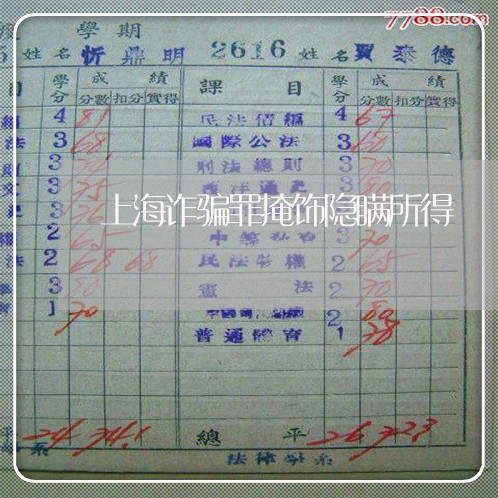 7788.com
學期
5 姓名 忻鼎明 2616 姓名 賈泰德
目 學分 成績 課目 學分 成績
分數 扣分 實得 分數 扣分 實得
4 81 民法債編 4 67
法 3 68 國際公法 3 60
3 刑法總則 3 70
3 75 3 80
上海诈骗罪掩饰隐瞒所得
3 76
2 65 3 70
法 2 68 68 民法物權 2 65
3 80 憲法 2 70
1 70 2 80
普通體育 1 78
平 24 74.1 總平 26 72.3
系 法律學系